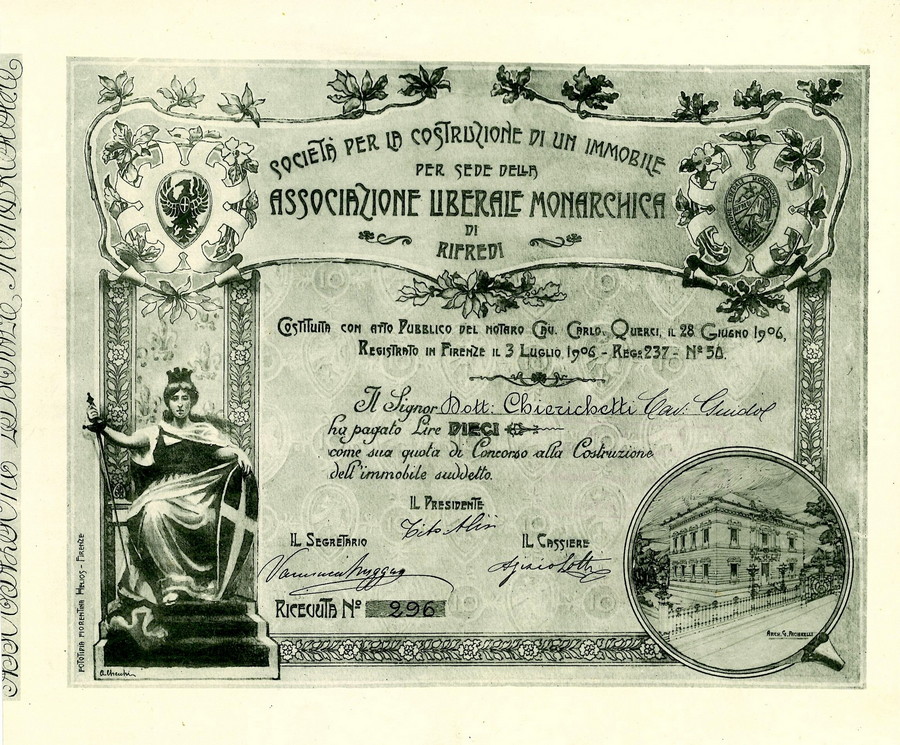 SOCIETÀ PER LA COSTRUZIONE DI UN IMMOBILE
PER SEDE DELLA
ASSOCIAZIONE LIBERALE MONARCHICA
DI
RIFREDI
COSTITUITA CON ATTO PUBBLICO DEL NOTARO CAV. CARLO QUERCI, IL 28 GIUGNO 1906,
REGISTRATO IN FIRENZE IL 3 LUGLIO 1906 - REG. 237 - Nº 50.
Il Signor Dott: Chierichetti Cav: Guido
ha pagato Lire DIECI
come sua quota di Concorso alla Costruzione
dell'immobile suddetto.
IL PRESIDENTE
Tito
IL SEGRETARIO
IL CASSIERE
RICEVUTA Nº 296
FOTOTIPIA FIORENTINA HELIOS - FIRENZE
ARCH. G.
ASSOCIAZIONE LIBERALE MONARCHICA